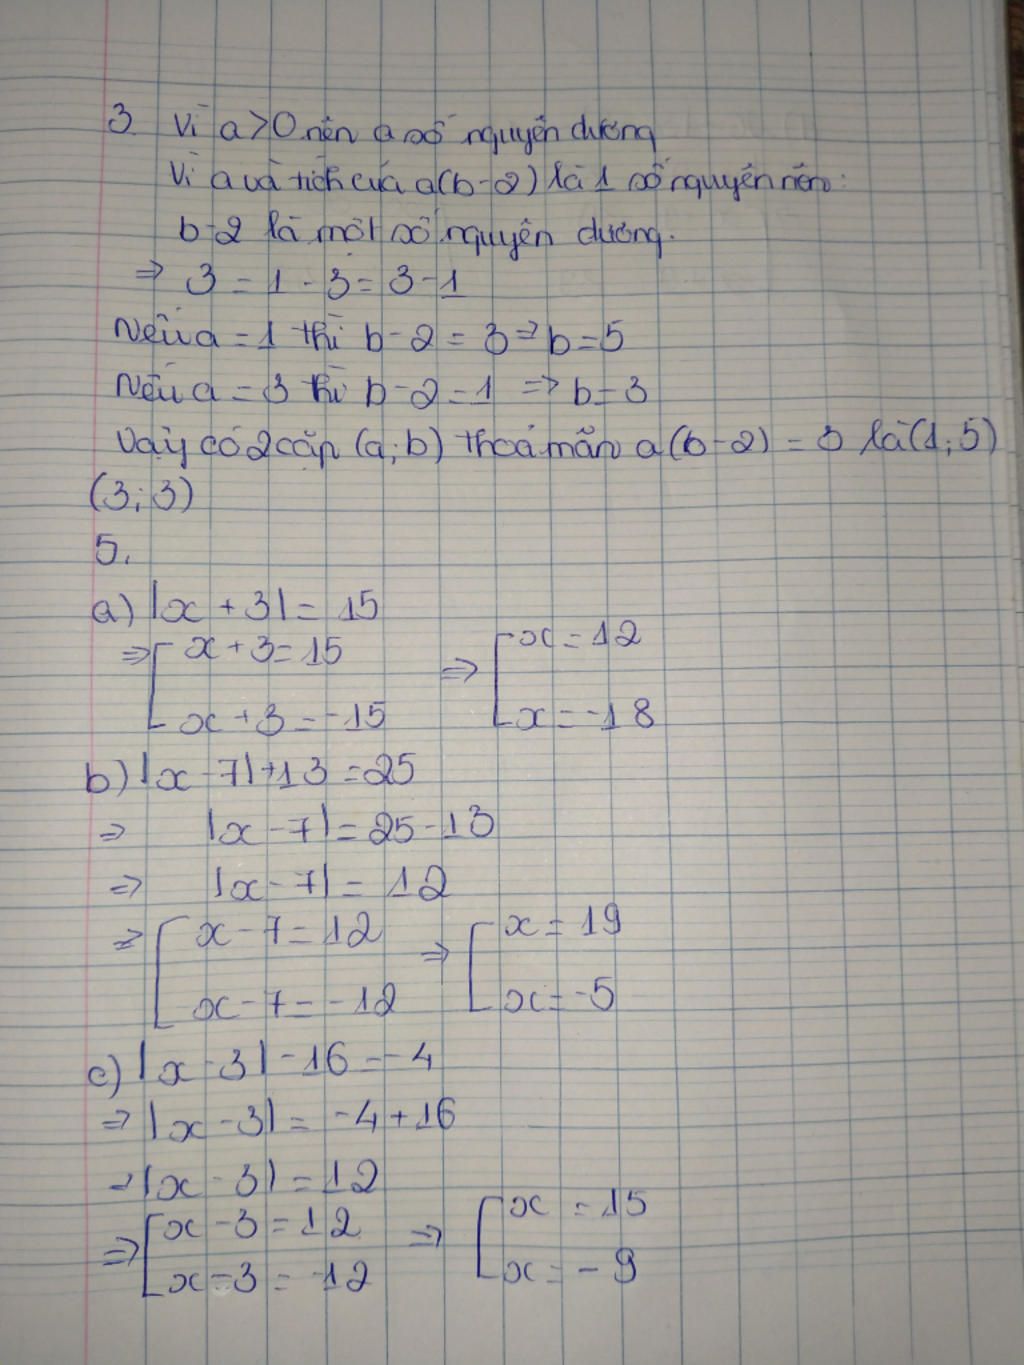 3 Vì a>0 nên a số nguyên dương
Vì a và tích của a(b-2) là 1 số nguyên nên:
b-2 là một số nguyên dương.
=> 3 = 1 . 3 = 3 - 1
Nếu a = 1 thì b - 2 = 3 => b = 5
Nếu a = 3 thì b - 2 = 1 => b = 3
Vậy có 2 cặp (a; b) thoả mãn a(b - 2) = 3 là (1; 5)
(3; 3)
5.
a) |x + 3| = 15
=> [ x + 3 = 15 => [ x = 12
x + 3 = -15 x = -18
b) |x - 7| + 13 = 25
=> |x - 7| = 25 - 13
=> |x - 7| = 12
=> [ x - 7 = 12 => [ x = 19
x - 7 = -12 x = -5
c) |x - 3| - 16 = -4
=> |x - 3| = -4 + 16
=> |x - 3| = 12
=> [ x - 3 = 12 => [ x = 15
x - 3 = -12 x = -9